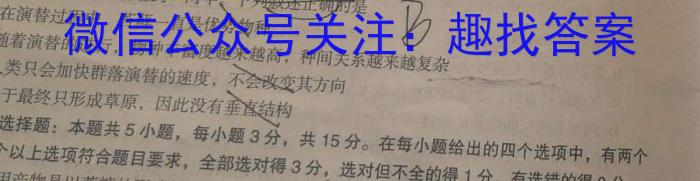 下列叙述正确的是
B
在演替过程中
一直是优势物种
微信公众号关注：趣找答案
随着演替的进行，物种丰富度越来越高，种间关系越来越复杂
类只会加快群落演替的速度，不会改变其方向
于最终只形成草原，因此没有垂直结构
选择题：本题共5小题，每小题3分，共15分。在每小题给出的四个选项中，有两个
个以上选项符合题目要求，全部选对得3分，选对但不全的得1分，有选错的得0分